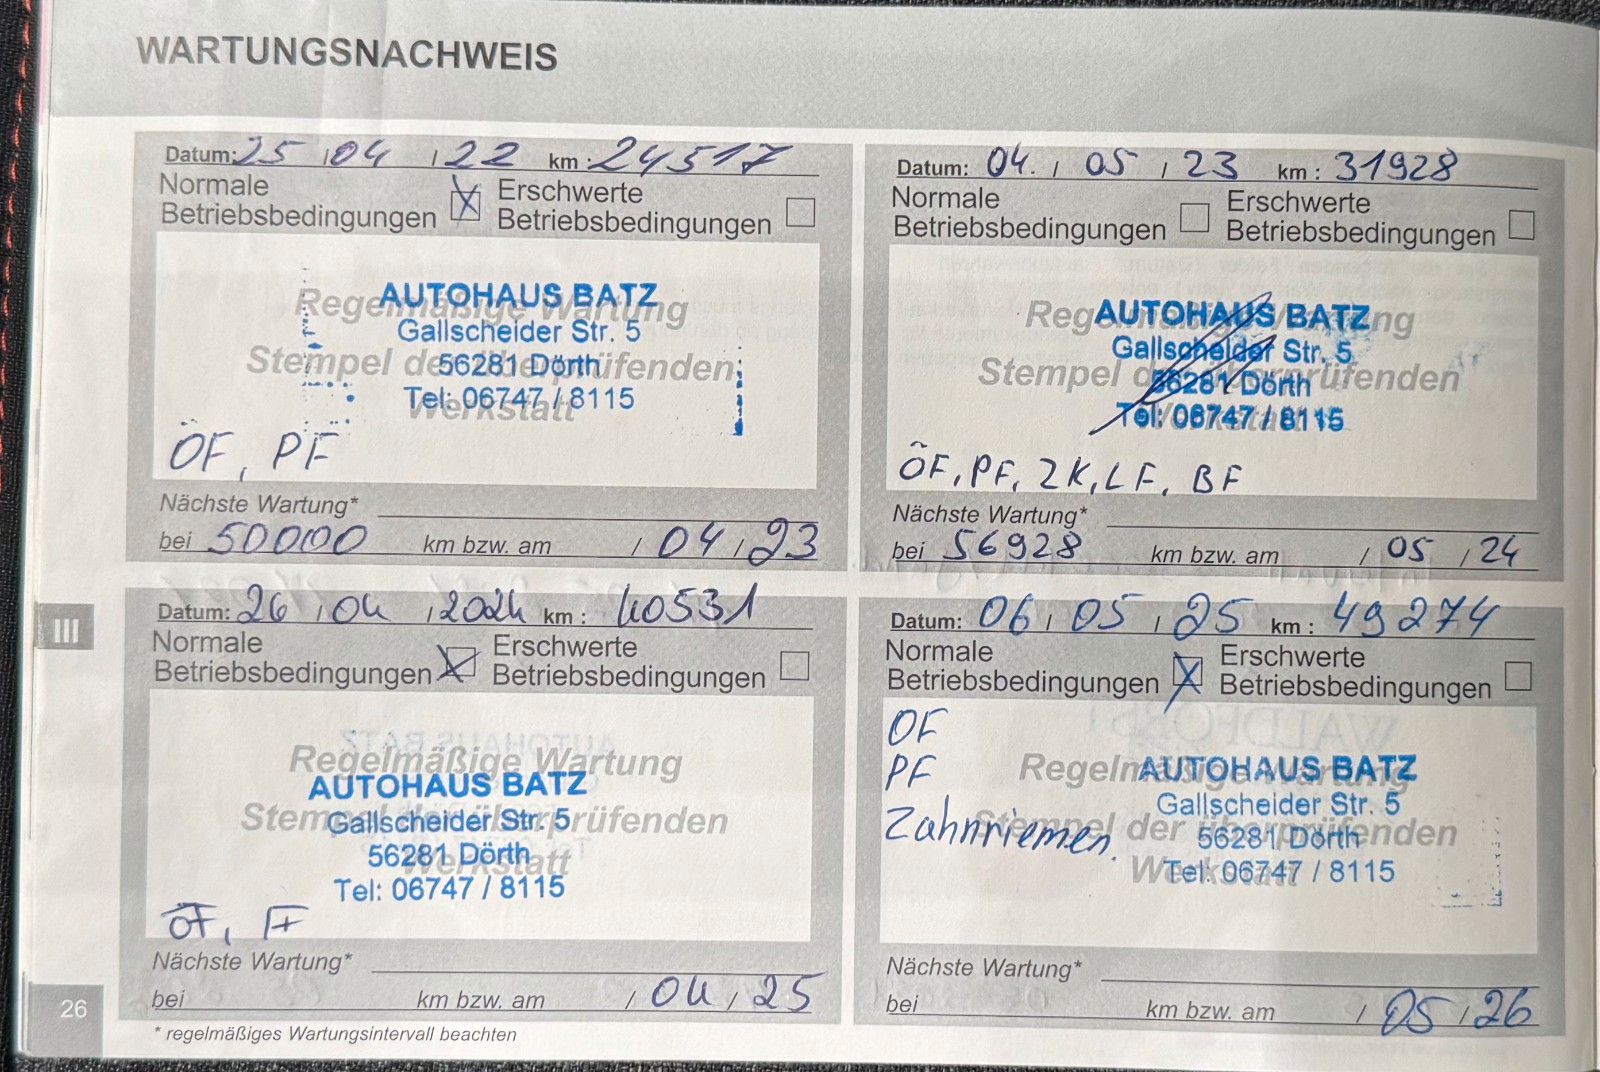 WARTUNGSNACHWEIS
Datum: 25 / 04 / 22 km : 24517
Normale Betriebsbedingungen X Erschwerte Betriebsbedingungen
Regelmäßige Wartung
Stempel der überprüfenden
Werkstatt
AUTOHAUS BATZ
Gallscheider Str. 5
56281 Dörth
Tel: 06747 / 8115
ÖF, PF
Nächste Wartung*
bei 50000 km bzw. am / 04 / 23
Datum: 04. / 05 / 23 km : 31928
Normale Betriebsbedingungen Erschwerte Betriebsbedingungen
Regelmäßige Wartung
Stempel der überprüfenden
Werkstatt
AUTOHAUS BATZ
Gallscheider Str. 5
56281 Dörth
Tel: 06747 / 8115
ÖF, PF, ZK, LF, BF
Nächste Wartung*
bei 56928 km bzw. am / 05 / 24
III
Datum: 26 / 04 / 2024 km : 40531
Normale Betriebsbedingungen X Erschwerte Betriebsbedingungen
Regelmäßige Wartung
Stempel der überprüfenden
Werkstatt
AUTOHAUS BATZ
Gallscheider Str. 5
56281 Dörth
Tel: 06747 / 8115
ÖF,
Nächste Wartung*
bei km bzw. am / 04 / 25
Datum: 06 / 05 / 25 km : 49274
Normale Betriebsbedingungen X Erschwerte Betriebsbedingungen
OF
PF
Zahnriemen.
Regelmäßige Wartung
Stempel der überprüfenden
Werkstatt
AUTOHAUS BATZ
Gallscheider Str. 5
56281 Dörth
Tel: 06747 / 8115
Nächste Wartung*
bei km bzw. am / 05 / 26
26
* regelmäßiges Wartungsintervall beachten